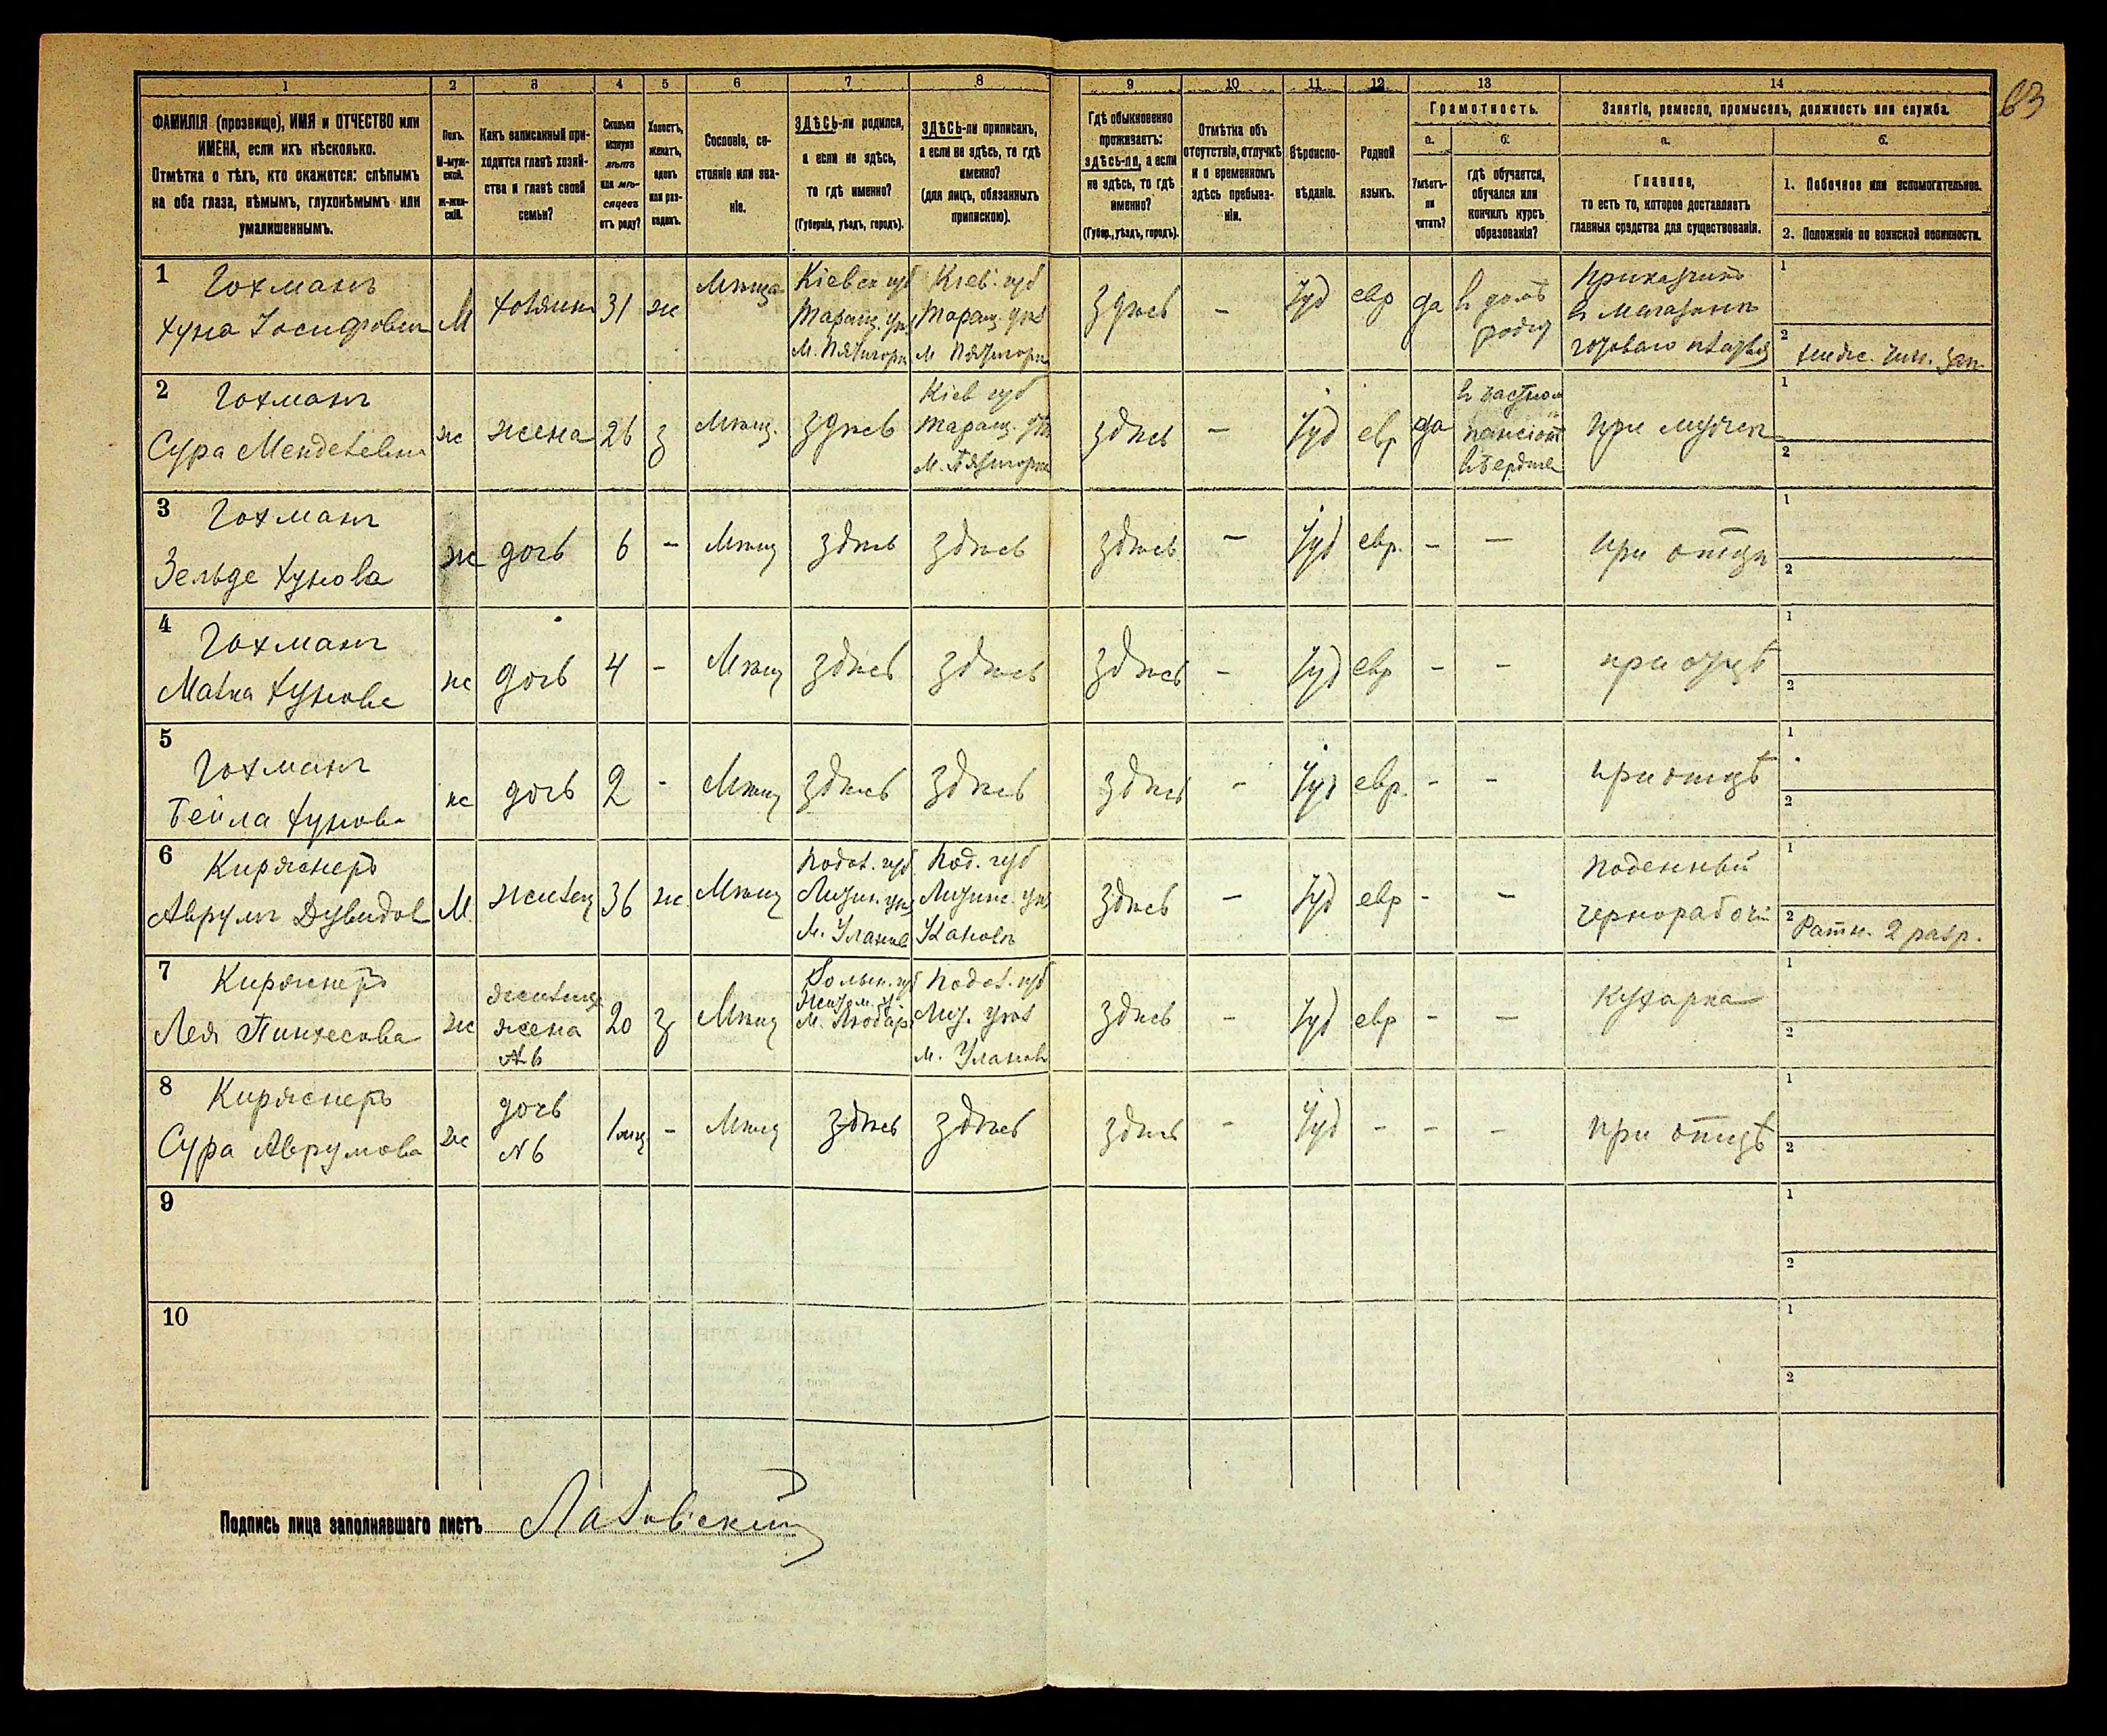 63
1 2 3 4 5 6 7 8 9 10 11 12 13 14
ФАМИЛІЯ (прозвище), ИМЯ и ОТЧЕСТВО или
ИМЕНА, если ихъ нѣсколько.
Отмѣтка о тѣхъ, кто окажется: слѣпымъ
на оба глаза, нѣмымъ, глухонѣмымъ или
умалишеннымъ.
Полъ.
М-муж-
ской.
ж-жен-
скій.
Какъ записанный при-
ходится главѣ хозяй-
ства и главѣ своей
семьи?
Сколько
минуло
лѣтъ
или мѣ-
сяцевъ
отъ роду?
Холостъ,
женатъ,
вдовъ
или раз-
веденъ.
Сословіе, со-
стояніе или зва-
ніе.
ЗДѢСЬ-ли родился,
а если не здѣсь,
то гдѣ именно?
(Губернія, уѣздъ, городъ).
ЗДѢСЬ-ли приписанъ,
а если не здѣсь, то гдѣ
именно?
(для лицъ, обязанныхъ
припискою).
Гдѣ обыкновенно
проживаетъ:
здѣсь-ли, а если
не здѣсь, то гдѣ
именно?
(Губер., уѣздъ, городъ).
Отмѣтка объ
отсутствіи, отлучкѣ
и о временномъ
здѣсь пребыва-
ніи.
Вѣроиспо-
вѣданіе.
Родной
языкъ.
Грамотность.
а.
Умѣетъ-
ли
читать?
б.
гдѣ обучается,
обучался или
кончилъ курсъ
образованія?
Занятіе, ремесло, промыселъ, должность или служба.
а.
Главное,
то есть то, которое доставляетъ
главныя средства для существованія.
б.
1. Побочное или вспомогательное.
2. Положеніе по воинской повинности.
1 Гохманъ
Хуна Іосифович
М
хозяинъ
31
ж
Мѣща
Кіевск. губ
Таращ. уѣз
М. Пятигоры
Кіев. губ
Таращ. уѣз
М Пятигоры
здѣсь
-
Іуд
евр
да
въ домѣ
Прикащикъ
въ магазинѣ
готоваго платья
1
2
2 Гохманъ
Сура Менделевна
ж
жена
26
з
Мѣщ.
здѣсь
Кіев губ
Таращ. уѣз
М. Пятигоры
здѣсь
-
Іуд
евр
да
въ частном
пансіонѣ
При мужѣ
1
2
3 Гохманъ
Зельде Хунова
ж
дочь
6
-
Мѣщ
здѣсь
здѣсь
здѣсь
-
Іуд
евр.
-
-
при отцѣ
1
2
4 Гохманъ
Малка Хунова
ж
дочь
4
-
Мѣщ
здѣсь
здѣсь
здѣсь
-
Іуд
евр
-
-
при отцѣ
1
2
5 Гохманъ
Бейла Хунова
ж
дочь
2
-
Мѣщ
здѣсь
здѣсь
здѣсь
-
Іуд
евр.
-
-
при отцѣ
1
2
6 Киржнеръ
Аврумъ Дувидов
М.
жилец
36
ж
Мѣщ
Подол. губ
Литин. уѣз
М. Уланов
Под. губ
Литинс. уѣз
Улановъ
здѣсь
-
Іуд
евр
-
-
Поденный
чернорабочій
1
2 Ратн. 2 разр.
7 Киржнеръ
Лея Пинхесова
ж
жилица
жена
№ 6
20
з
Мѣщ
Волын. губ
Житом. у
М. Любар
Подол. губ
Лит. уѣз
м. Уланов
здѣсь
-
Іуд
евр
-
-
Кухарка
1
2
8 Киржнеръ
Сура Аврумова
ж
дочь
№ 6
1 мѣц
-
Мѣщ
здѣсь
здѣсь
здѣсь
-
Іуд
-
-
-
при отцѣ
1
2
9
1
2
10
1
2
Подпись лица заполнявшаго листъ